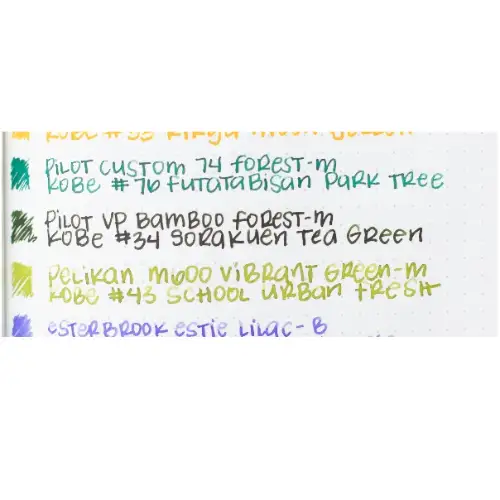 KOBE #
PILOT CUSTOM 74 FOREST-M
KOBE #76 FUTATABISAN PARK TREE
PILOT VP BAMBOO FOREST-M
KOBE #34 SORAKUEN TEA GREEN
PELIKAN M600 VIBRANT GREEN-M
KOBE #43 SCHOOL URBAN FRESH
ESTERBROOK ESTIE LILAC-B